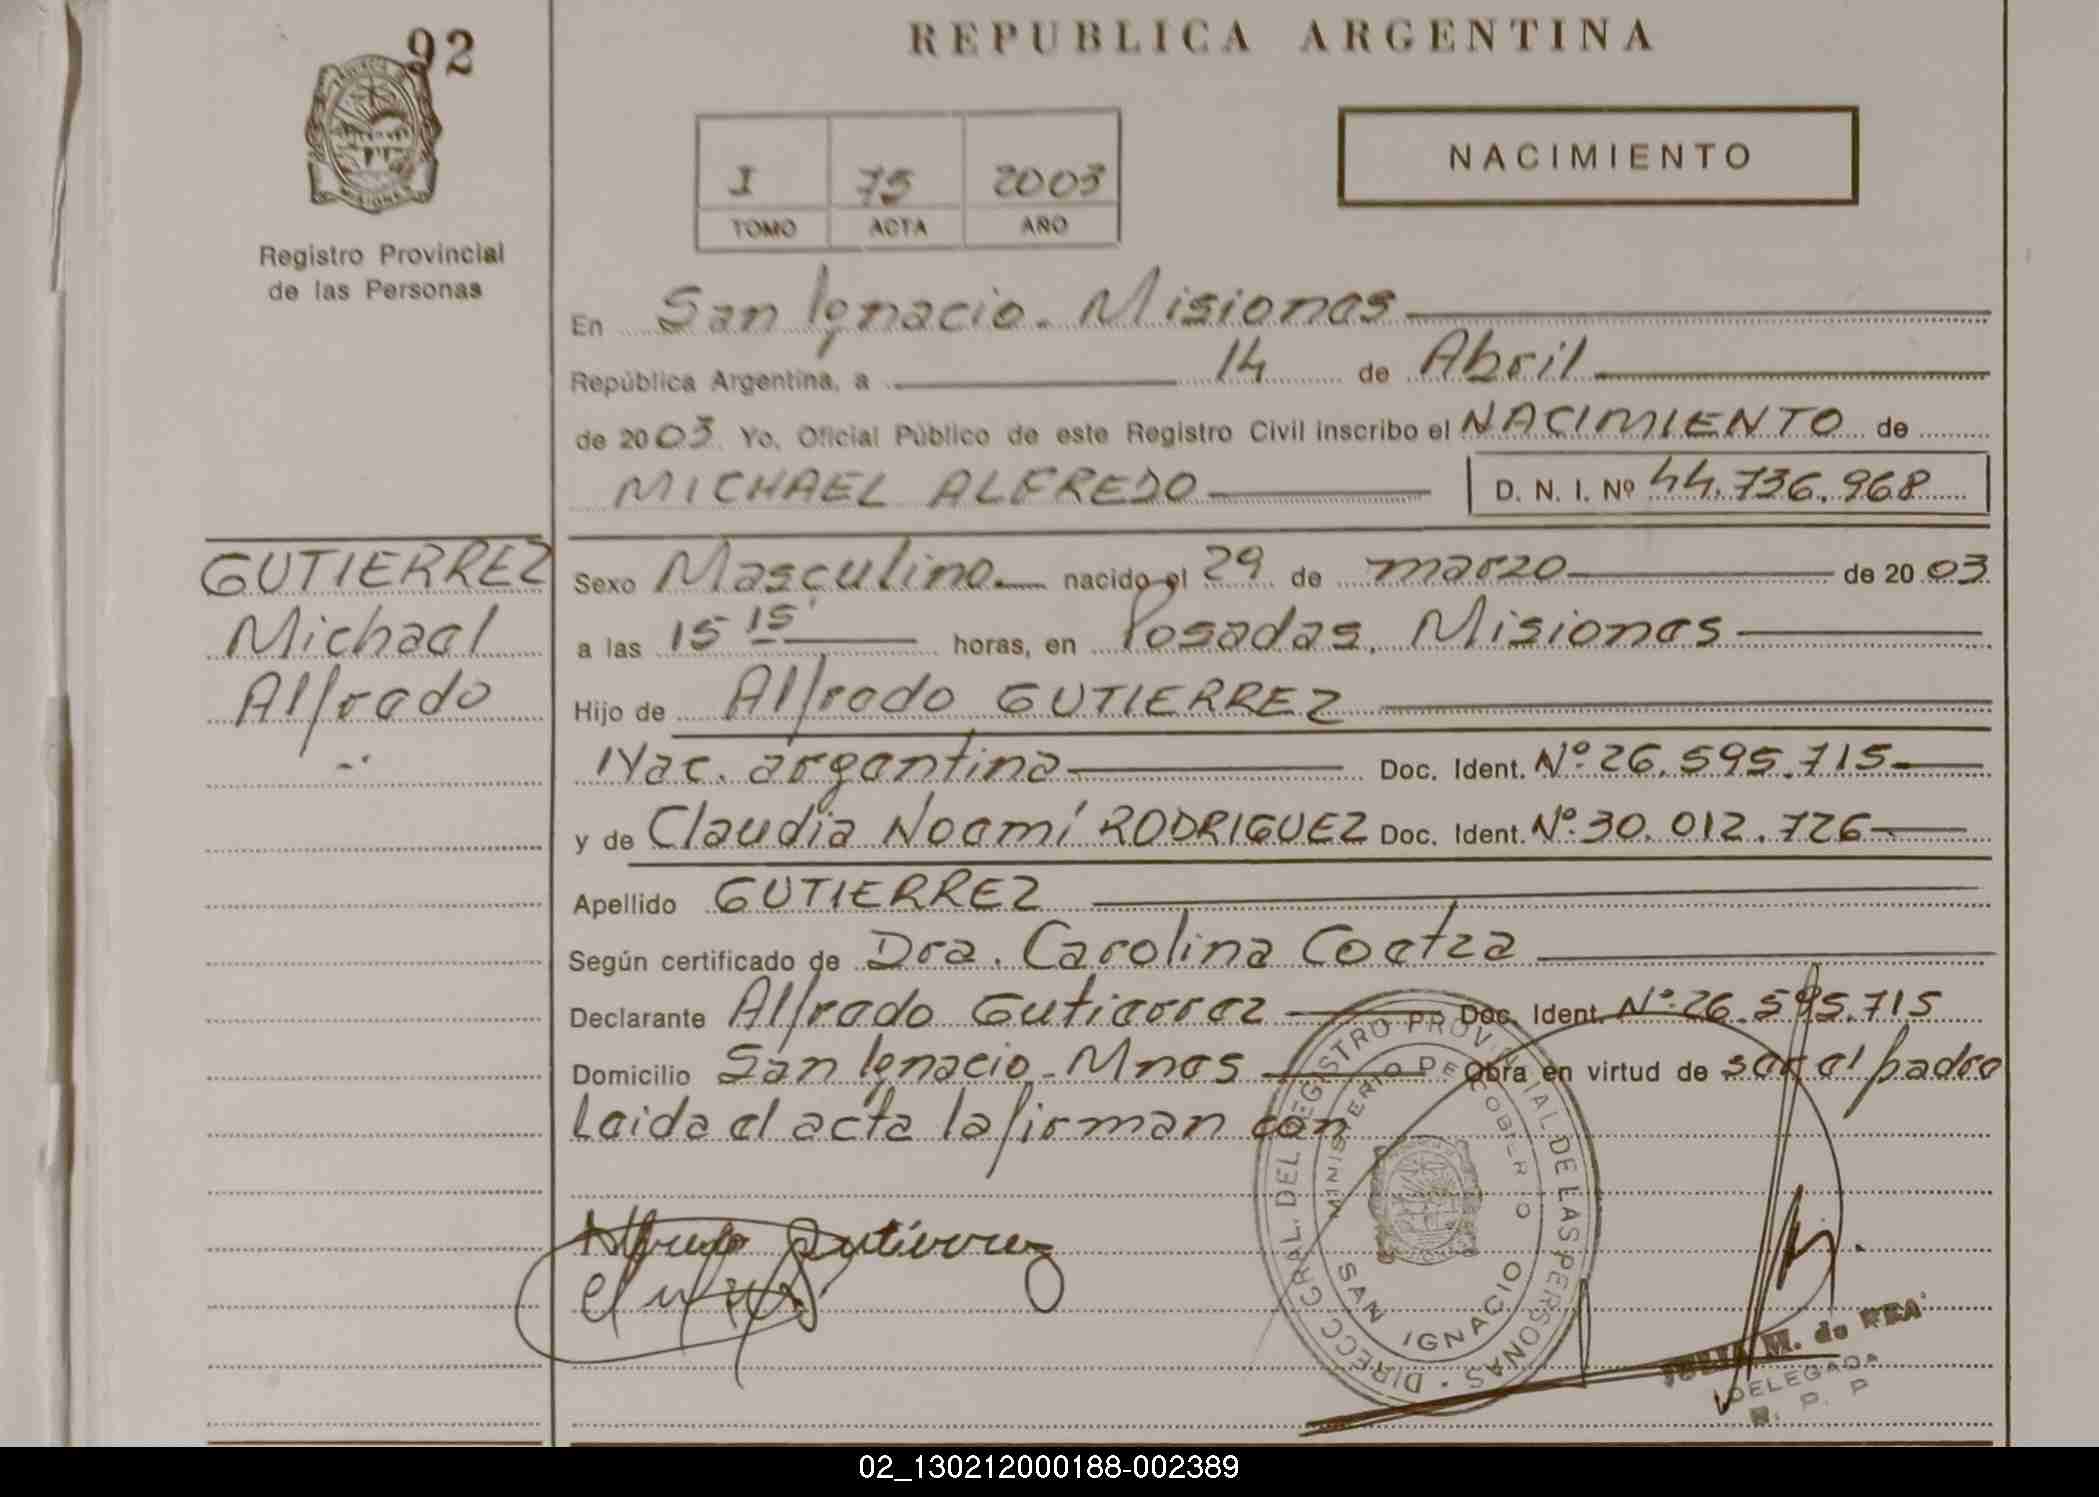 92
REPUBLICA ARGENTINA
NACIMIENTO
I 75 2003
TOMO ACTA AÑO
Registro Provincial
de las Personas
En San Ignacio - Misiones
República Argentina, a 14 de Abril
de 2003. Yo, Oficial Público de este Registro Civil inscribo el NACIMIENTO de
MICHAEL ALFREDO D. N. I. Nº 44.736.968
GUTIERREZ
Michael
Alfredo
Sexo Masculino nacido el 29 de marzo de 20 03
a las 15 15' horas, en Posadas, Misiones
Hijo de Alfredo GUTIERREZ
Nac. argentina Doc. Ident. Nº 26.595.715
y de Claudia Noemí RODRIGUEZ Doc. Ident. Nº 30.012.726
Apellido GUTIERREZ
Según certificado de Dra. Carolina Coetza
Declarante Alfredo Gutierrez Doc. Ident. Nº 26.595.715
Domicilio San Ignacio - Mnes Obra en virtud de ser el padre
Leida el acta la firman con
Alfredo Gutierrez
DIRECC GRAL. DEL REGISTRO PROVINCIAL DE LAS PERSONAS
MINISTERIO DE GOBIERNO
SAN IGNACIO
M. de REA
DELEGADA
R. P. P
02_130212000188-002389